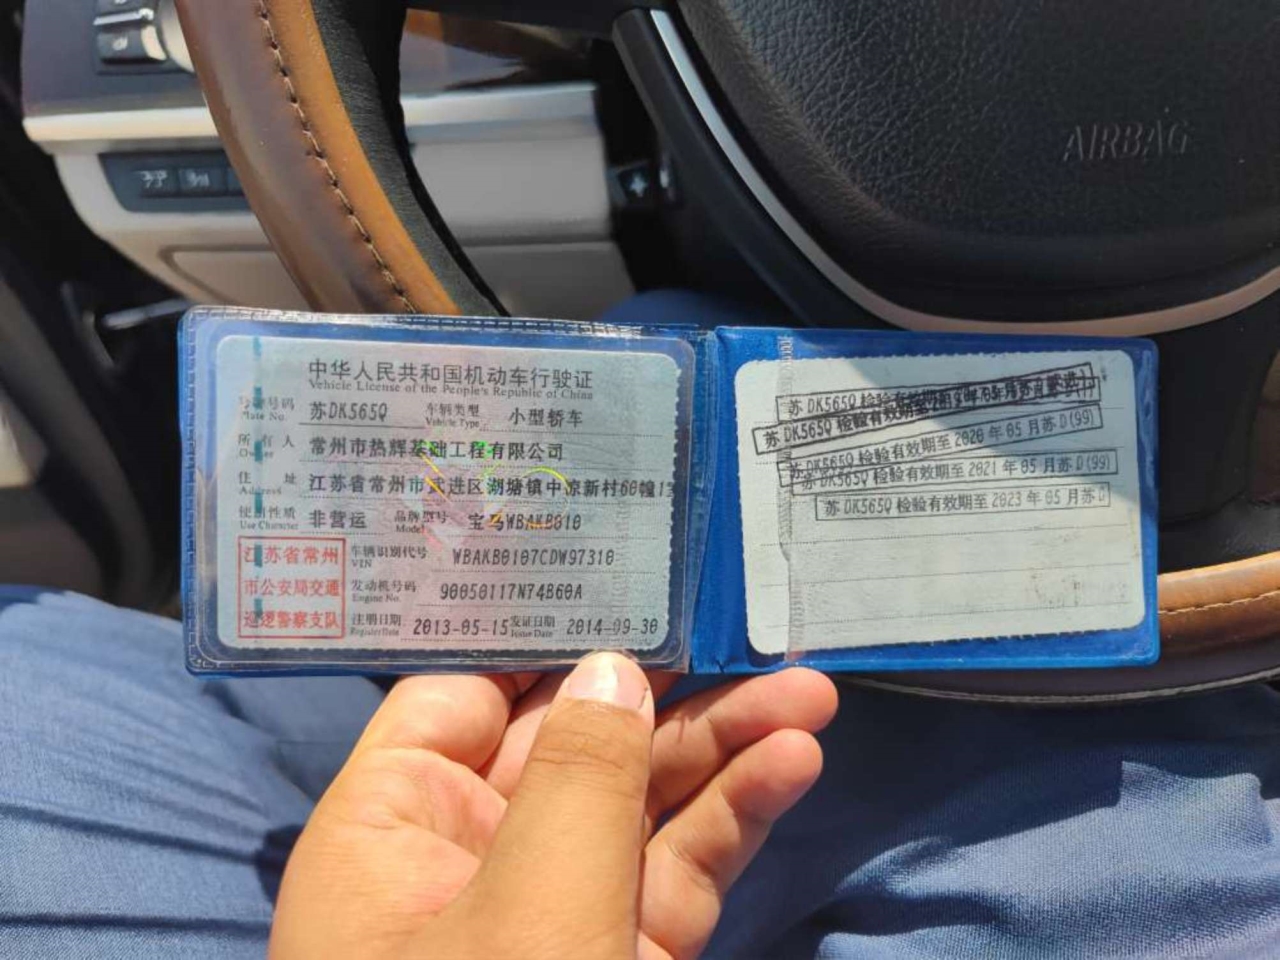 AIRBAG
中华人民共和国机动车行驶证
Vehicle License of the People's Republic of China
号牌号码 苏DK565Q 车辆类型 小型轿车
Plate No. Vehicle Type
所有人 常州市热辉基础工程有限公司
Owner
住址 江苏省常州市武进区湖塘镇中凉新村60幢1室
Address
使用性质 非营运 品牌型号 宝马WBAKB010
Use Character Model
江苏省常州
市公安局交通
巡逻警察支队
车辆识别代号 WBAKB0107CDW97310
VIN
发动机号码 90050117N74B60A
Engine No.
注册日期 2013-05-15 发证日期 2014-09-30
Register Date Issue Date
苏DK565Q 检验有效期至
苏DK565Q 检验有效期至2020年05月苏D(99)
苏DK565Q 检验有效期至2021年05月苏D(99)
苏DK565Q 检验有效期至2023年05月苏D